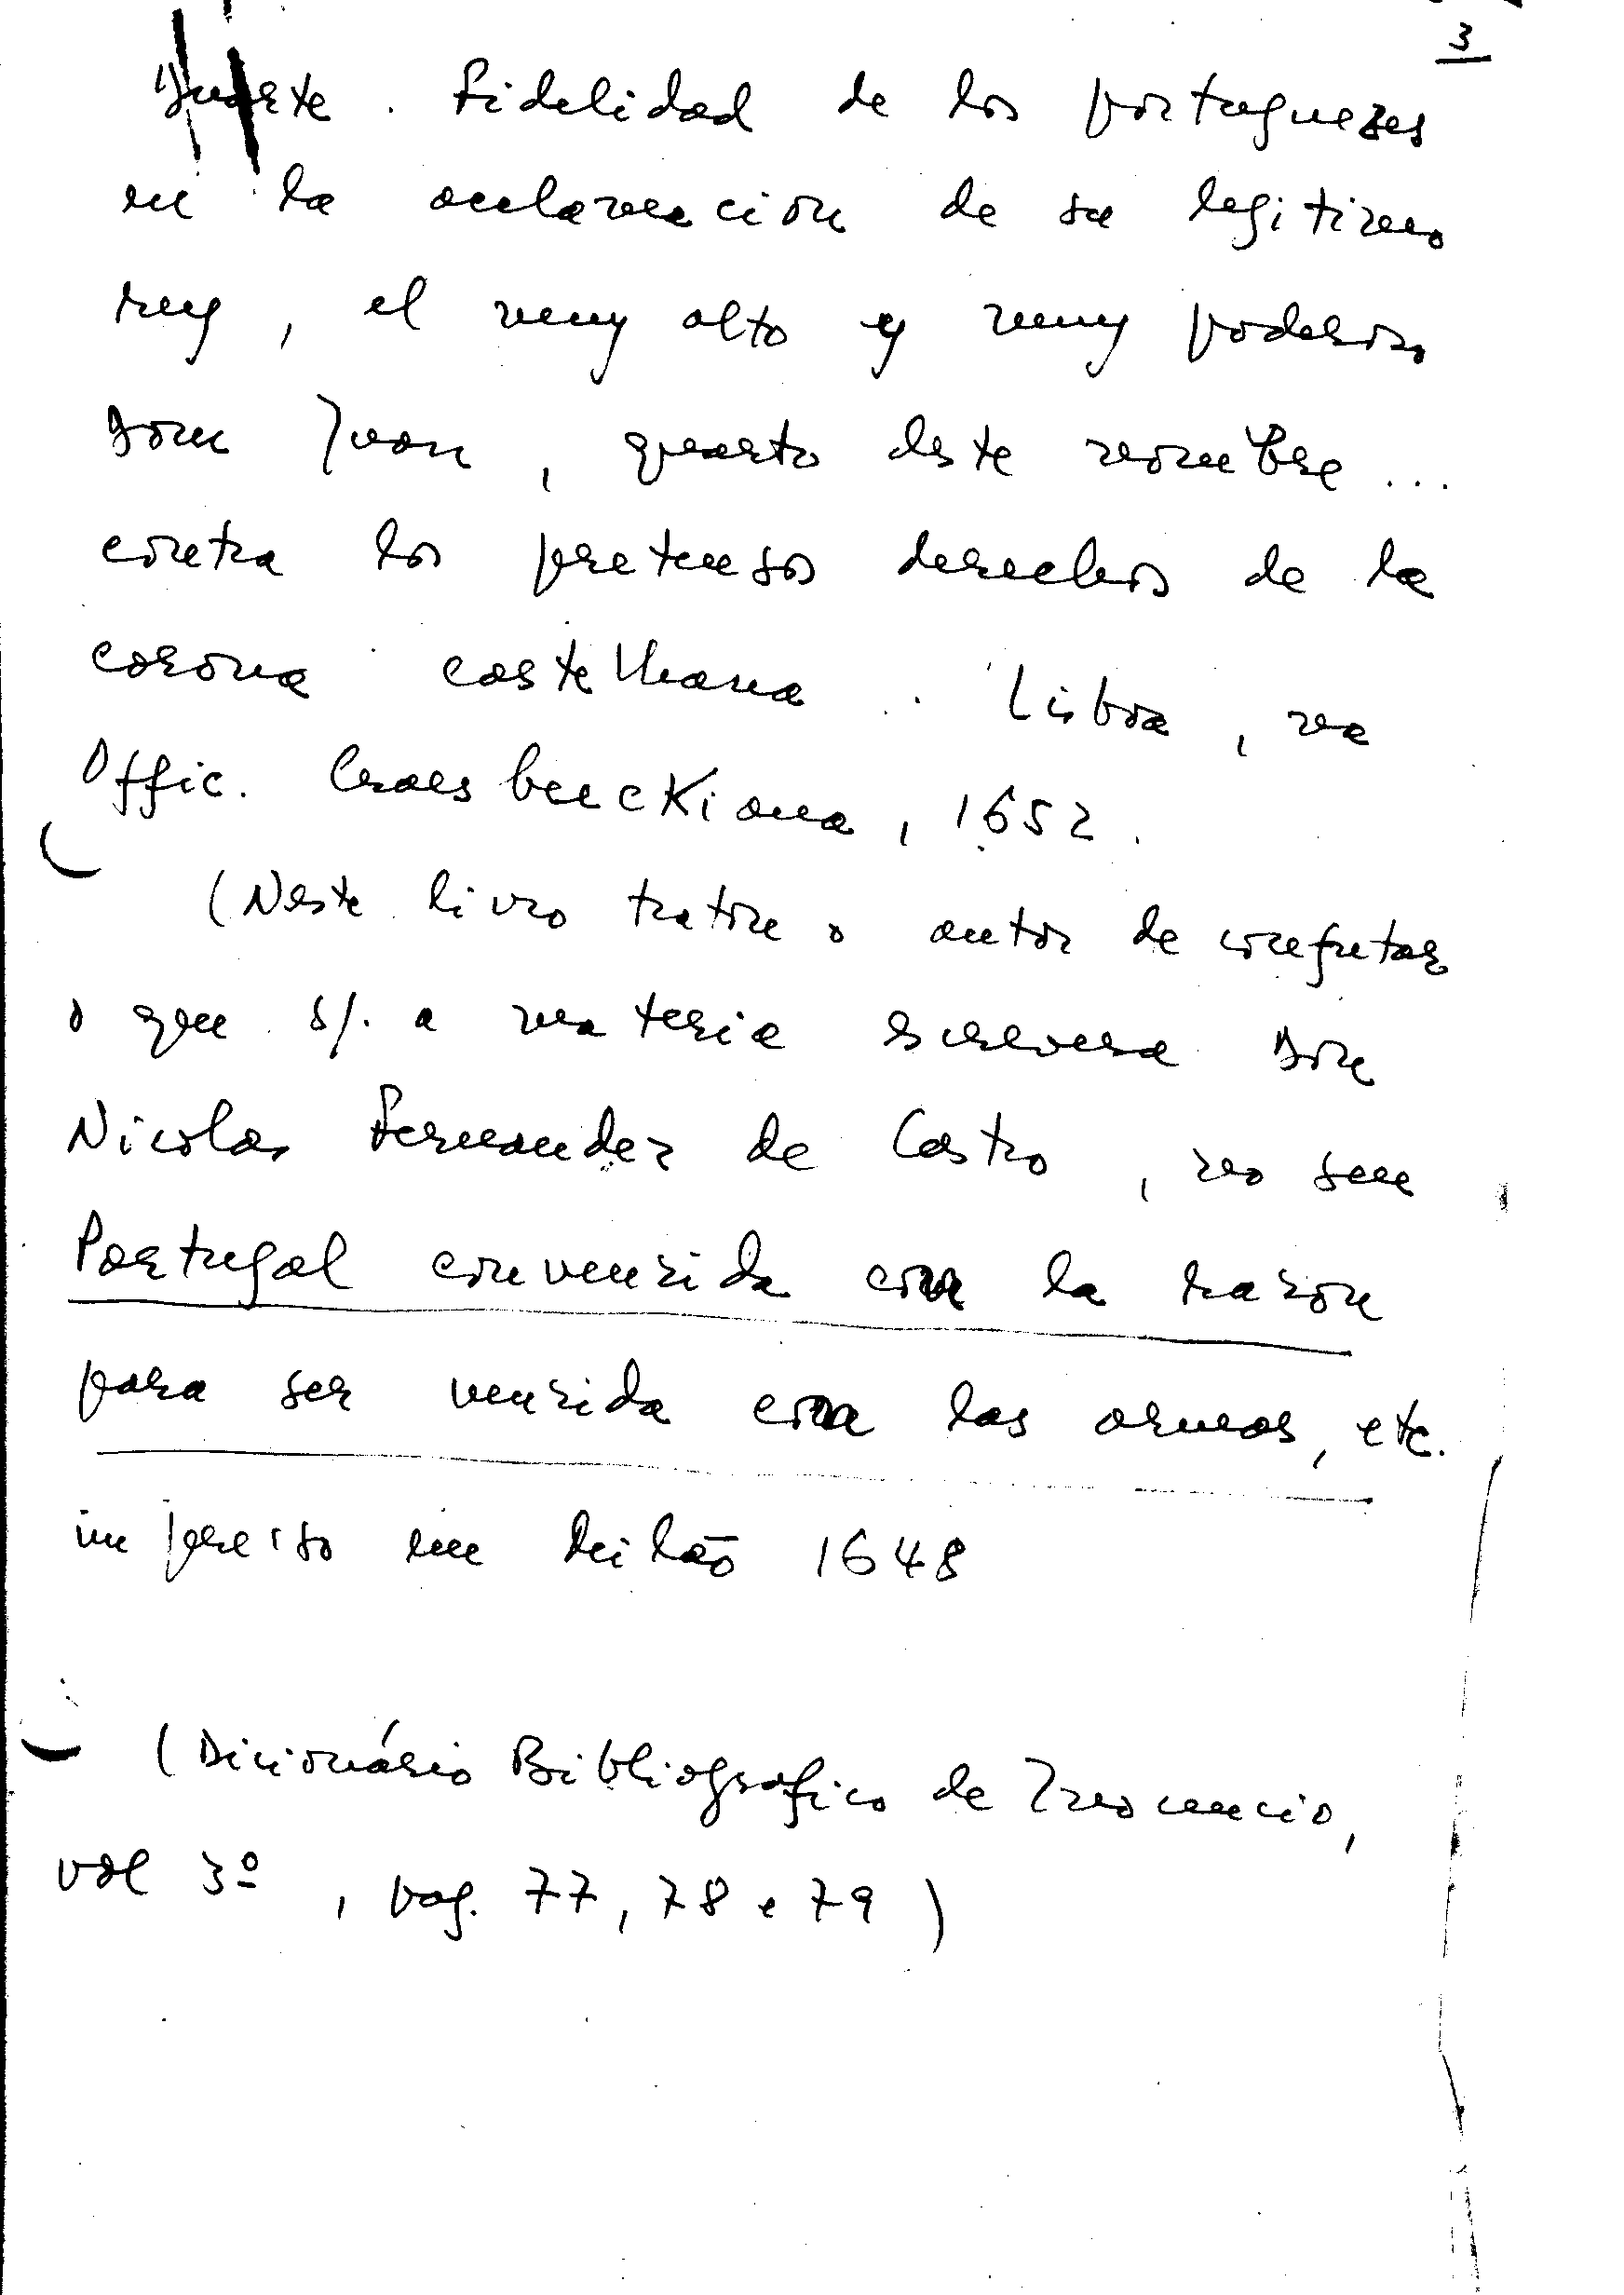 3
Duarte. Fidelidad de los portuguezes
en la aclamacion de su legitimo
rey, el muy alto y muy poderoso
Dom Juan, quarto deste nombre ...
contra los pretensos derechos de la
corona castelhana. Lisboa, na
Offic. Craesbeeckiana, 1652.
(Neste livro tratou o autor de confutar
o que s/. a materia escrevera Don
Nicolas Fernandez de Castro, no seu
Portugal convenzida con la razon
para ser venzida con las armas, etc.
impreso em Milão 1648
(Dicionário Bibliografico de Inocencio,
vol 3º, pag. 77, 78 e 79)